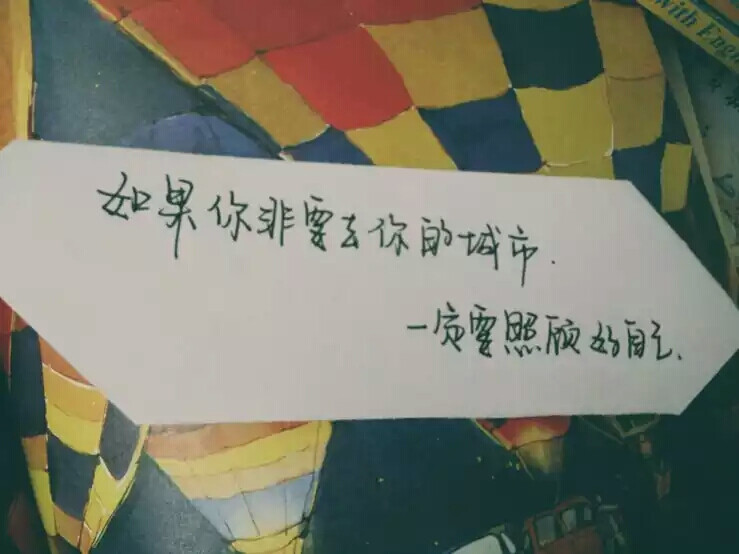 with Eng
如果你非要去你的城市.
一定要照顾好自己.